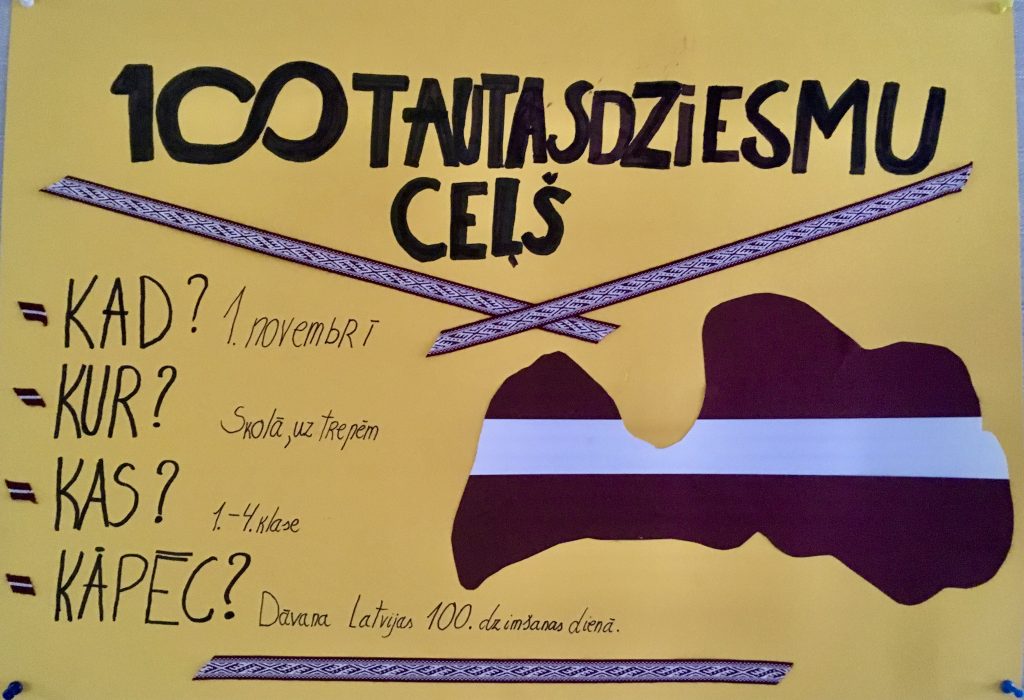 100 TAUTASDZIESMU
CEĻŠ
KAD? 1. novembrī
KUR? Skolā, uz trepēm
KAS? 1.-4. klase
KĀPĒC? Dāvana Latvijas 100. dzimšanas dienā.